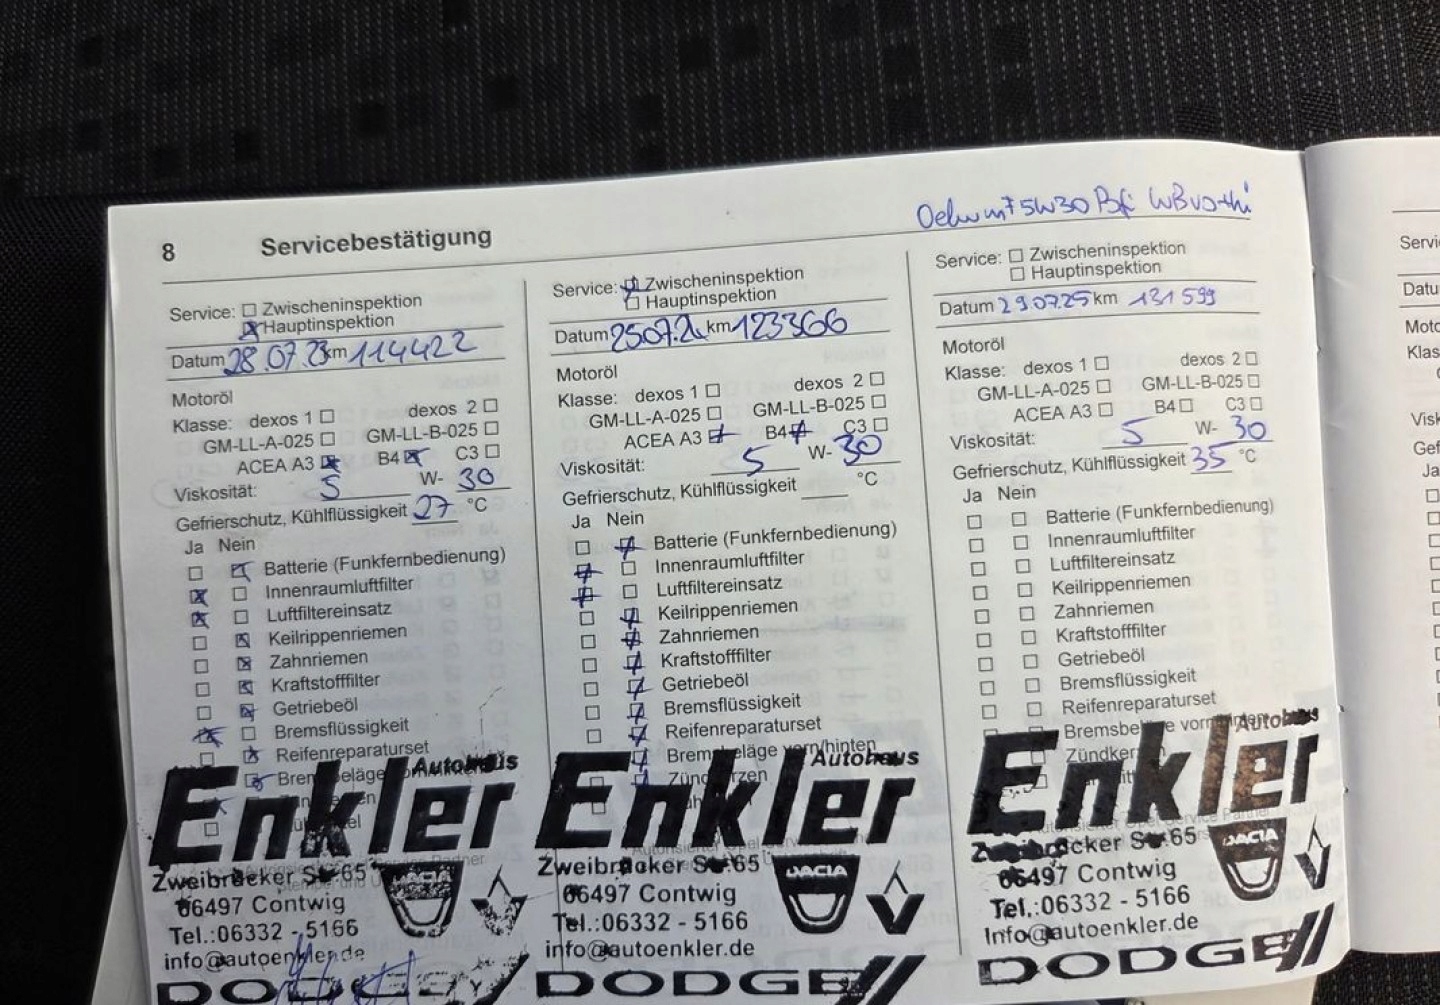 8 Servicebestätigung
Service: Zwischeninspektion
Hauptinspektion
Datum 28.07.23 km 114422
Motoröl
Klasse: dexos 1 dexos 2
GM-LL-A-025 GM-LL-B-025
ACEA A3 B4 C3
Viskosität: 5 W- 30
Gefrierschutz, Kühlflüssigkeit 27 °C
Ja Nein
Batterie (Funkfernbedienung)
Innenraumluftfilter
Luftfiltereinsatz
Keilrippenriemen
Zahnriemen
Kraftstofffilter
Getriebeöl
Bremsflüssigkeit
Reifenreparaturset
Autohaus
Enkler
Zweibrücker Str. 65
66497 Contwig
Tel.:06332 - 5166
info@autoenkler.de
DACIA
DODGE
Service: Zwischeninspektion
Hauptinspektion
Datum 25.07.24 km 123366
Motoröl
Klasse: dexos 1 dexos 2
GM-LL-A-025 GM-LL-B-025
ACEA A3 B4 C3
Viskosität: 5 W- 30
Gefrierschutz, Kühlflüssigkeit °C
Ja Nein
Batterie (Funkfernbedienung)
Innenraumluftfilter
Luftfiltereinsatz
Keilrippenriemen
Zahnriemen
Kraftstofffilter
Getriebeöl
Bremsflüssigkeit
Reifenreparaturset
Bremsbeläge vorn/hinten
Zündkerzen
Autohaus
Enkler
Zweibrücker Str. 65
66497 Contwig
Tel.:06332 - 5166
info@autoenkler.de
DACIA
DODGE
5W30
Service: Zwischeninspektion
Hauptinspektion
Datum 29.07.25 km 131599
Motoröl
Klasse: dexos 1 dexos 2
GM-LL-A-025 GM-LL-B-025
ACEA A3 B4 C3
Viskosität: 5 W- 30
Gefrierschutz, Kühlflüssigkeit 35 °C
Ja Nein
Batterie (Funkfernbedienung)
Innenraumluftfilter
Luftfiltereinsatz
Keilrippenriemen
Zahnriemen
Kraftstofffilter
Getriebeöl
Bremsflüssigkeit
Reifenreparaturset
Bremsbeläge vorn/hinten
Zündkerzen
Autohaus
Enkler
Zweibrücker Str. 65
66497 Contwig
Tel.:06332 - 5166
info@autoenkler.de
DACIA
DODGE